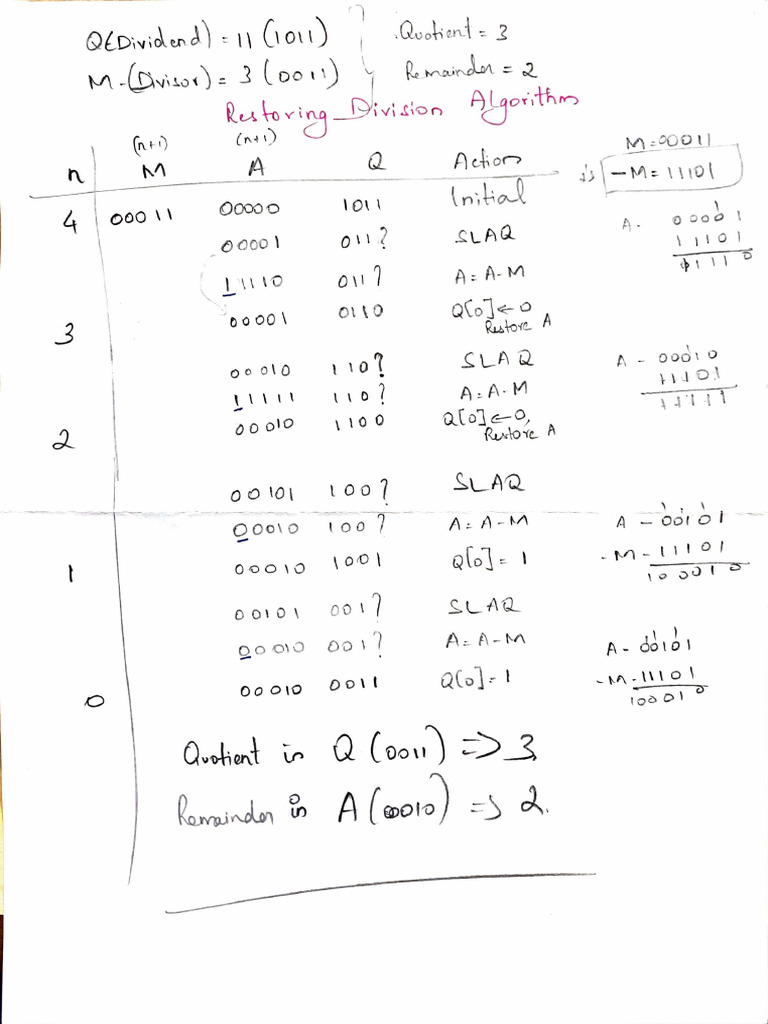 Q(Dividend) = 11 (1011) Quotient = 3
M-(Divisor) = 3 (0011) Remainder = 2
Restoring Division Algorithm
(n+1) (n+1)
n M A Q Action
M=00011
-M=11101
4 00011 00000 1011 Initial
00001 011? SLAQ
A- 00001
11101
11110
11110 011? A=A-M
00001 0110 Q[0]←0
Restore A
3
00010 110? SLAQ
A - 00010
11101
11111
11111 110? A=A-M
00010 1100 Q[0]←0,
Restore A
2
00101 100? SLAQ
00010 100? A=A-M
A - 00101
-M - 11101
100010
00010 1001 Q[0]=1
1
00101 001? SLAQ
00010 001? A=A-M
A - 00101
-M - 11101
100010
00010 0011 Q[0]=1
0
Quotient in Q (0011) => 3
Remainder in A (00010) => 2.